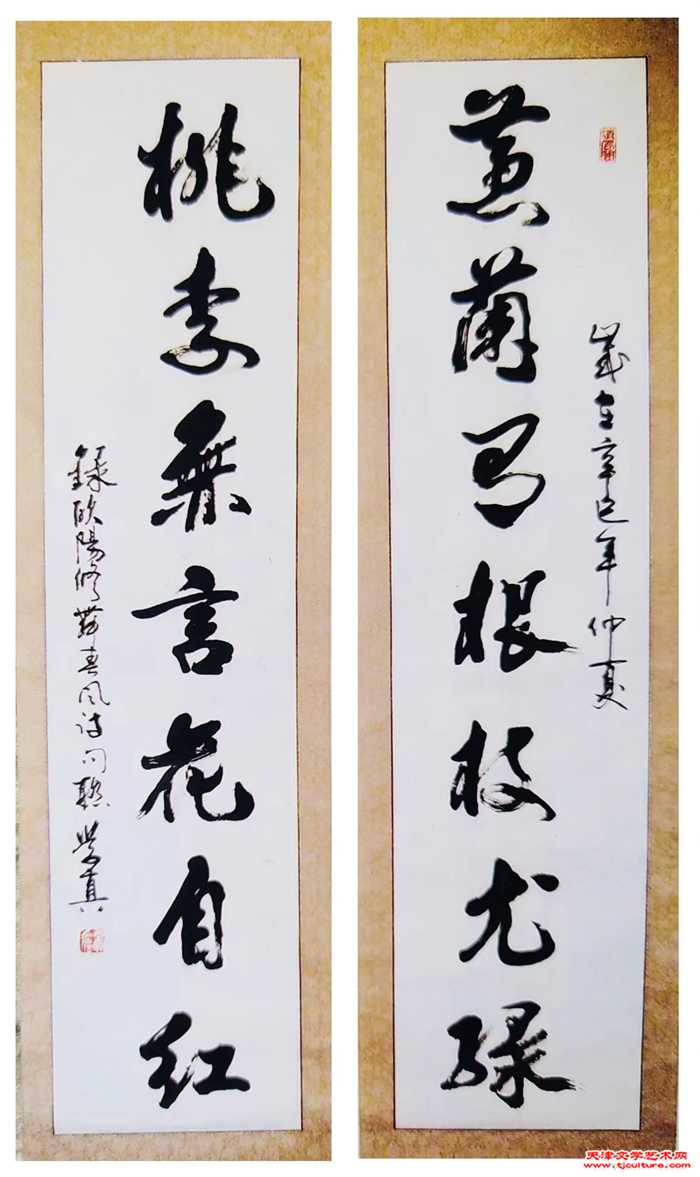 蕙蘭有根枝尤綠
歲在辛巳年仲夏
桃李無言花自紅
錄歐陽修舞春風詩句聯 學真
天津文学艺术网
www.tjculture.com